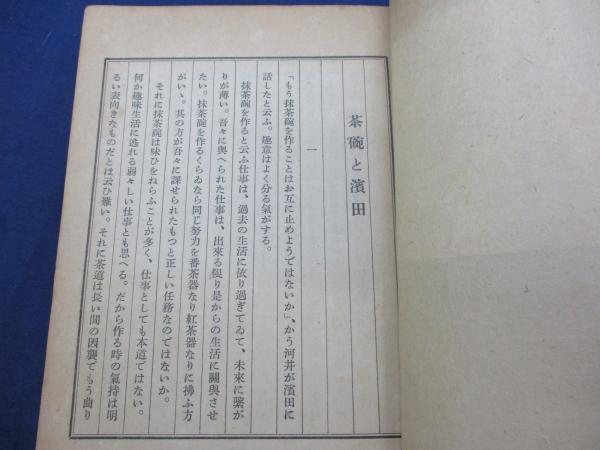 茶碗と濱田
一
「もう抹茶碗を作ることはお互に止めようではないか」、かう河井が濱田に
話したと云ふ。趣意はよく分る氣がする。
抹茶碗を作ると云ふ仕事は、過去の生活に依り過ぎてゐて、未來に繋が
りが薄い。吾々に與へられた仕事は、出來る限り是からの生活に關與させ
たい。抹茶碗を作るくらゐなら同じ努力を番茶器なり紅茶器なりに拂ふ方
がいゝ。其の方が吾々に課せられたもつと正しい任務なのではないか。
それに抹茶碗は味ひをねらふことが多く、仕事としても本道ではない。
何か趣味生活に逃れる弱々しい仕事とも思へる。だから作る時の氣持は明
るい表向きなものだとは云ひ難い。それに茶道は長い間の因襲でもう曲り